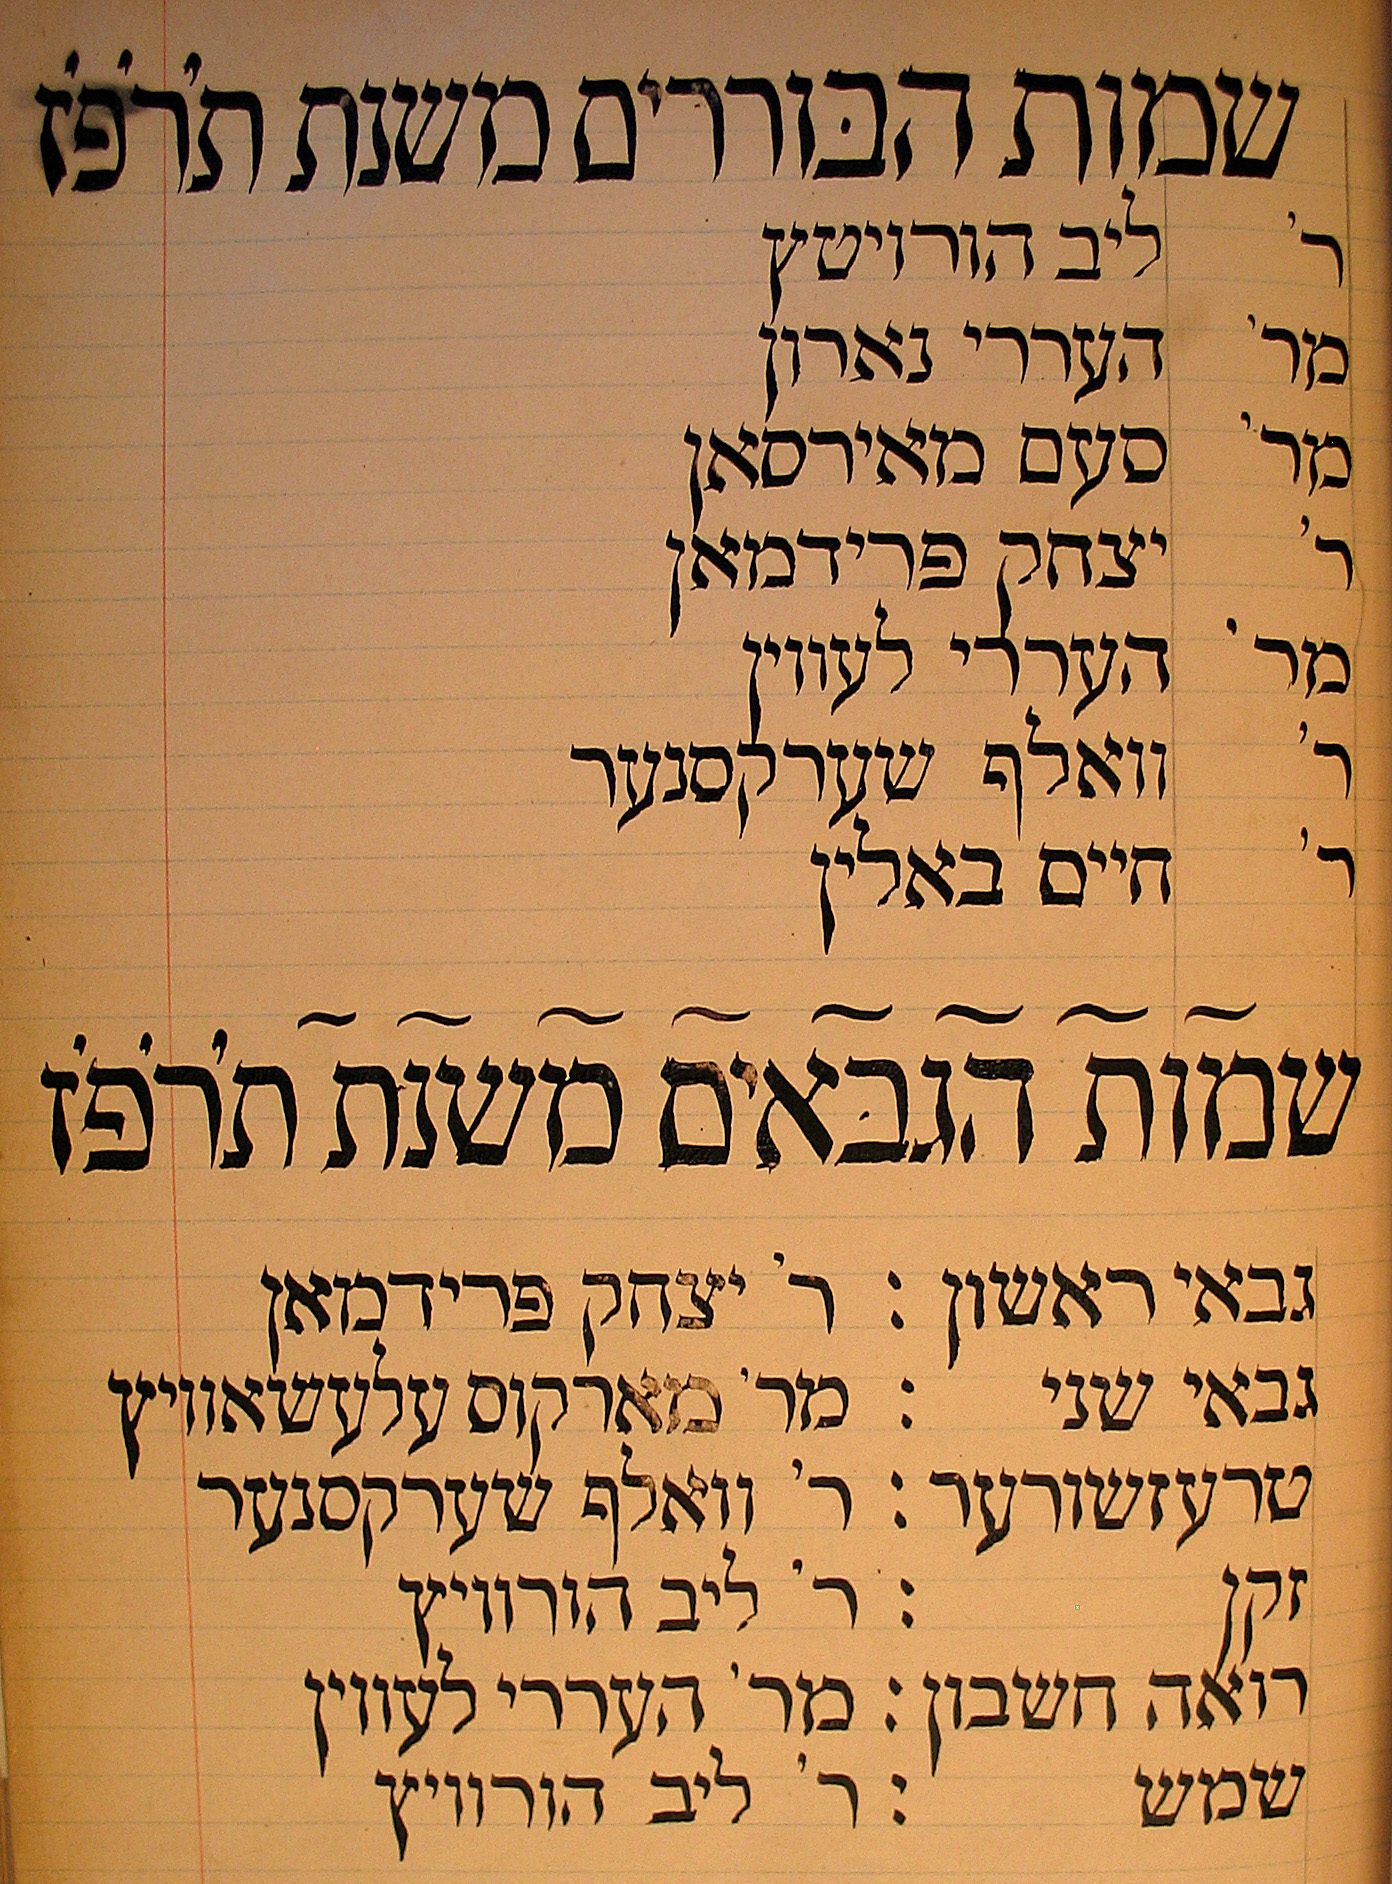 שמות הבּוררים משנת ת'ר'פ'ז'
ר' ליב הורויטץ
מר' העררי נארון
מר' סעם מאירסאן
ר' יצחק פרידמאן
מר' העררי לעווין
ר' וואלף שערקסנער
ר' חיים באלין
שמות הגבּאים משנת ת'ר'פ'ז
גבאי ראשון : ר' יצחק פרידמאן
גבאי שני : מר' מארקוס עלעשאוויץ
טרעזשורער : ר' וואלף שערקסנער
זקן : ר' ליב הורוויץ
רואה חשבון : מר' העררי לעווין
שמש : ר' ליב הורוויץ